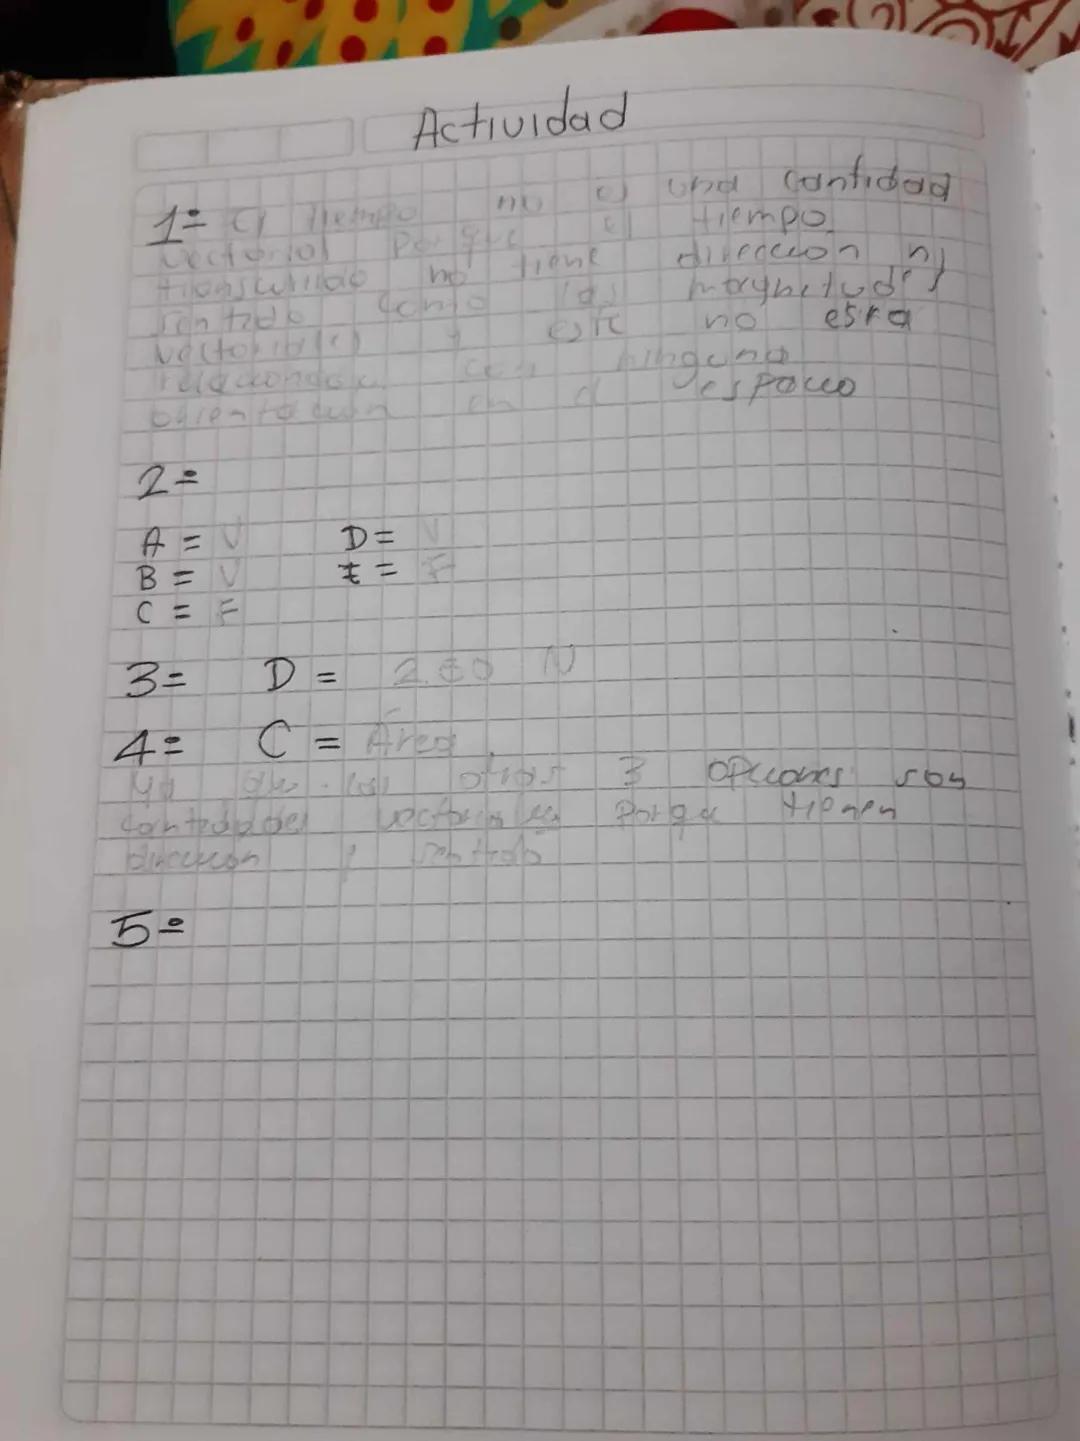 Actividad
1= El tiempo no es una cantidad
vectorial porque el tiempo
transcurrido no tiene direccion ni
sentido como las magnitudes
vectoriales y este no esta
relacionada con ninguna
orientacion en el espacio
2=
A = V D = V
B = V E = F
C = F
3= D = N
4= C = Área.
ya que las otras 3 opciones son
cantidades vectoriales porque tienen
direccion y sentido
5=